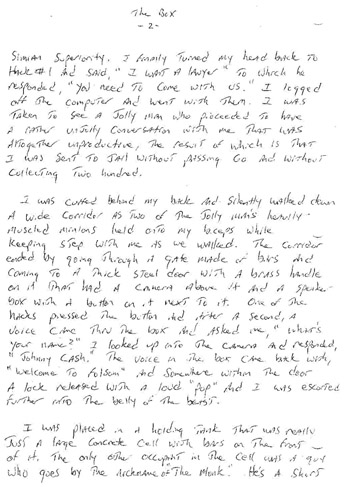 The Box
- 2 -
Simian Superiority. I finally turned my head back to
Hack #1 and said, "I want a lawyer" to which he
responded, "You need to come with us." I logged
off the computer and went with them. I was
taken to see a Jolly man who proceeded to have
a rather unjolly conversation with me that was
altogether unproductive, the result of which is that
I was sent to Jail without passing Go and without
collecting Two hundred.
I was cuffed behind my back and silently walked down
a wide corridor as two of the Jolly man's heavily-
muscled minions held onto my biceps while
keeping step with me as we walked. The corridor
ended by going through a gate made of bars and
coming to a thick steel door with a brass handle
on it that had a camera above it and a speaker
box with a button on it next to it. One of the
hacks pressed the button and, after a second, a
voice came thru the box and asked me, "what's
your name?" I looked up into the camera and responded,
"Johnny Cash." The voice in the box came back with,
"Welcome to Folsom" and somewhere within the door
a lock released with a loud "pop" and I was escorted
further into the belly of the beast.
I was placed in a holding tank that was really
just a large concrete cell with bars on the front
of it. The only other occupant in the cell was a guy
who goes by the nickname of "The Monk". He's a short